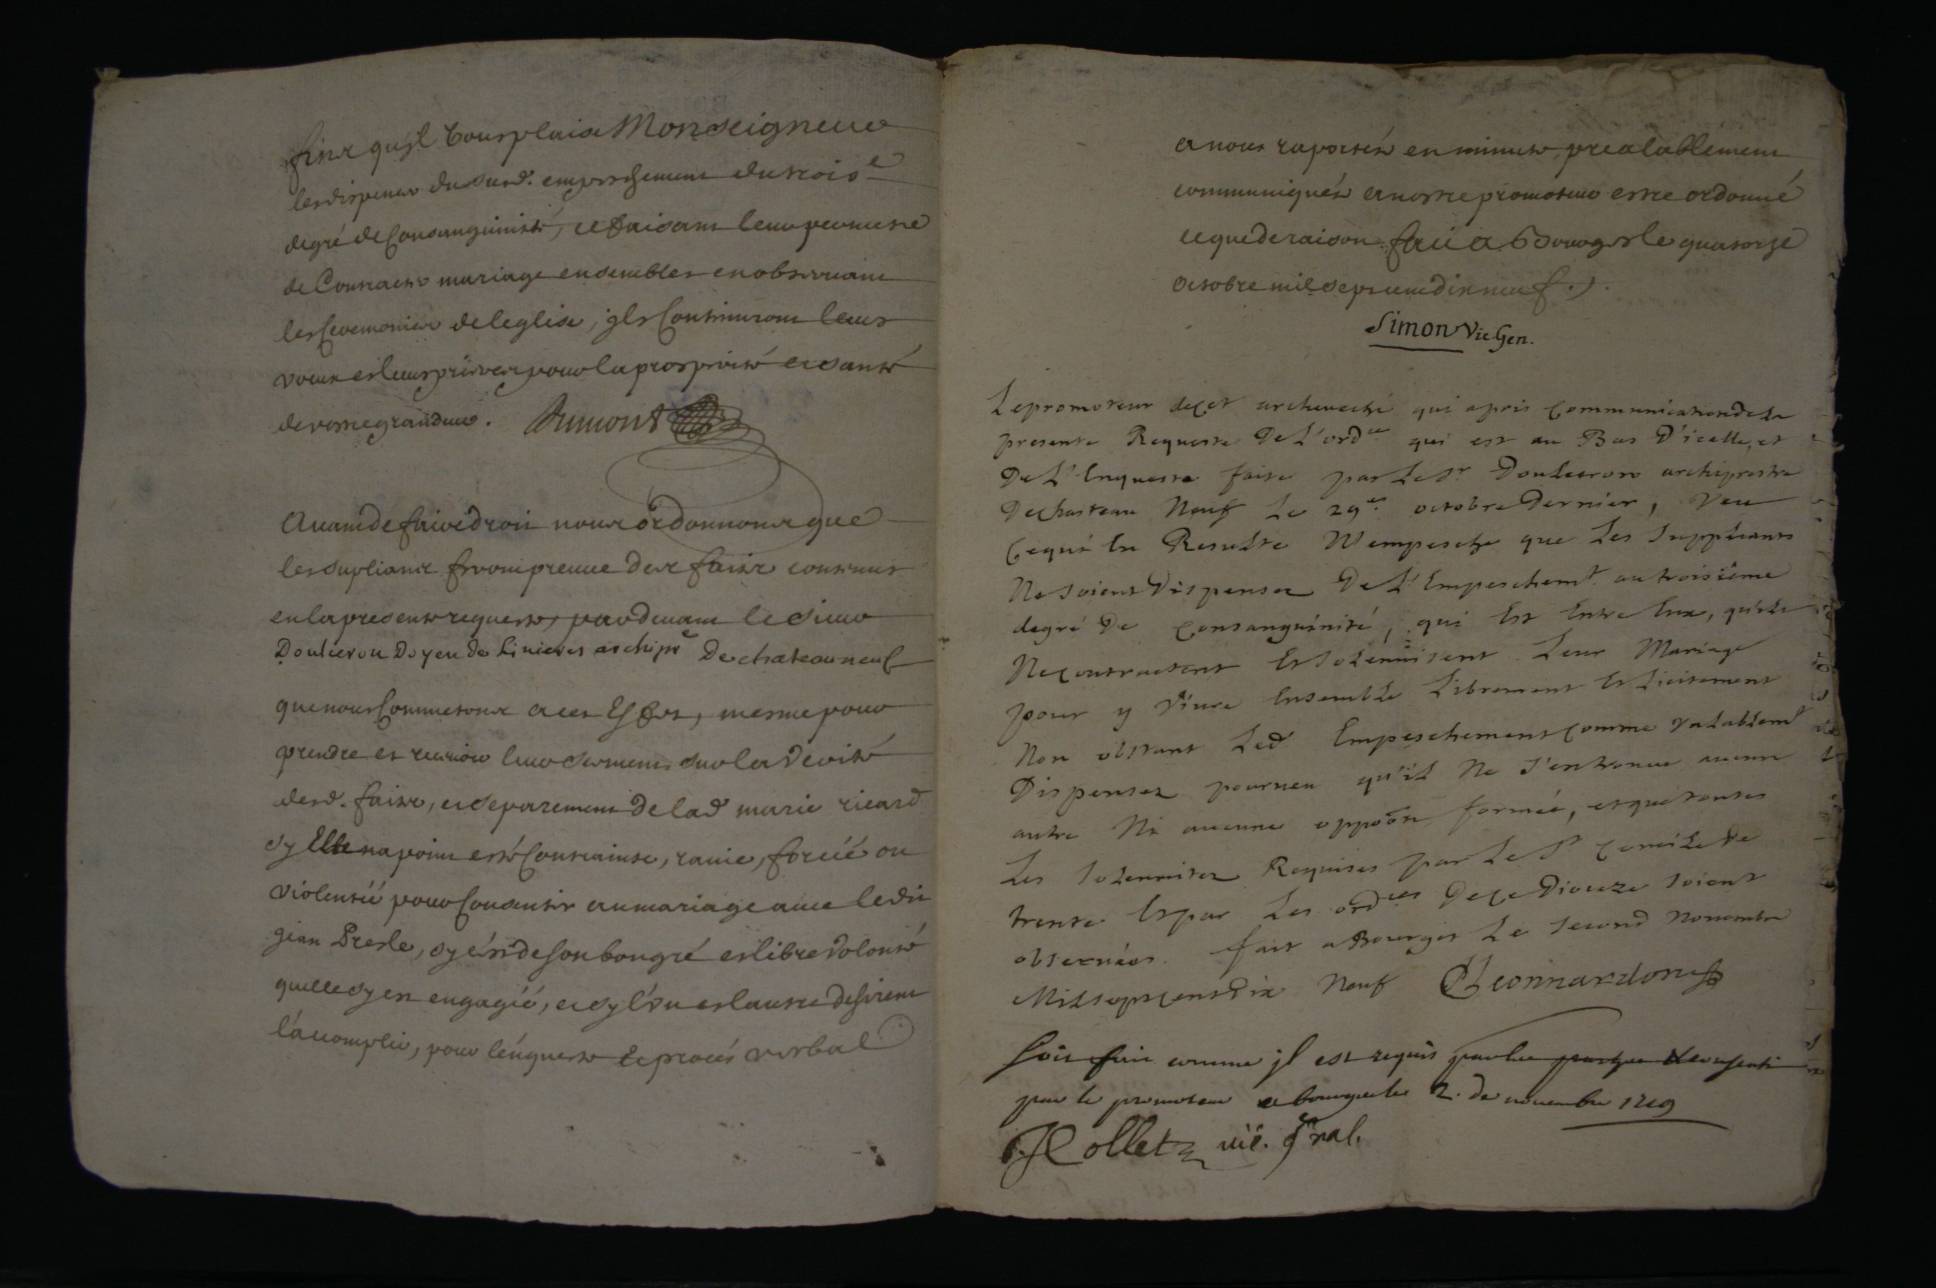 fins quil vous plaise Monseigneur
les dispenser du susd. empeschement du trois.e
degré de Consanguinité, ce faisant leur permettre
de Contracter mariage ensembles en observant
les Ceremonies de leglise, ils Continuront leurs
voeux et leurs prieres pour la prosperité et santé
de vostre grandeur. Dumont
Avant de faire droit nous ordonnons que
les supliants feront preuve des faits contenus
en la presente requeste, pardevant le sieur
Doulieron Doyen de Linieres archipr.e De chateauneuf
que nous Commetons a cet Effet, mesme pour
prendre et recevoir leur serment sur la verité
desd. faits, et separement de lad marie ricard
sy Elle na point esté Contrainte, ravie, forcéé ou
violentéé pour Consentir au mariage avec le dit
jean Presle, sy cést de son bon gré et libre volonté
quelle sy est engagéé, et sy lún et lautre desirent
láccomplir, pour lénqueste et procés verbal
a nous raportés en minute prealablement
communiqués a nostre promoteur estre ordonné
ce que de raison. fait a Bourges le quatorze
octobre mil sept cent dix neuf.
Simon Vic Gen.
Le promoteur de cet archevesché qui apris communication de la
presente Requeste De L'ord.ce qui est au Bas D'icelle, et
De L'Enqueste faite par Le Sr Doulieron archiprestre
De chasteau Neuf Le 29.e octobre Dernier, Veu
ce qui En Resulte N'empesche que Les Suppliants
Ne soient Dispensez De L'Empeschem.t au troisiéme
degré De consanguinité, qui Est Entre Eux, qu'ils
Ne contractent Et solennisent Leur Mariage
pour y Vivre Ensemble Librement Et Licitement
Non obstant Led Empeschement comme Valablem.t
Dispensez pourveu qu'il Ne s'en trouve aucun
autre Ni aucune oppoon formée, et que toutes
Les solennitez Requises par Le St concile de
trente Et par Les ord.ces De ce Dioceze soient
observées. fait a Bourges Le second Novembre
Mil sept cens Dix Neuf Leonnardon
Soit fait comme il est requis
par le promoteur a bourges le 2. de novembre 1719
Collet vic. gnal.